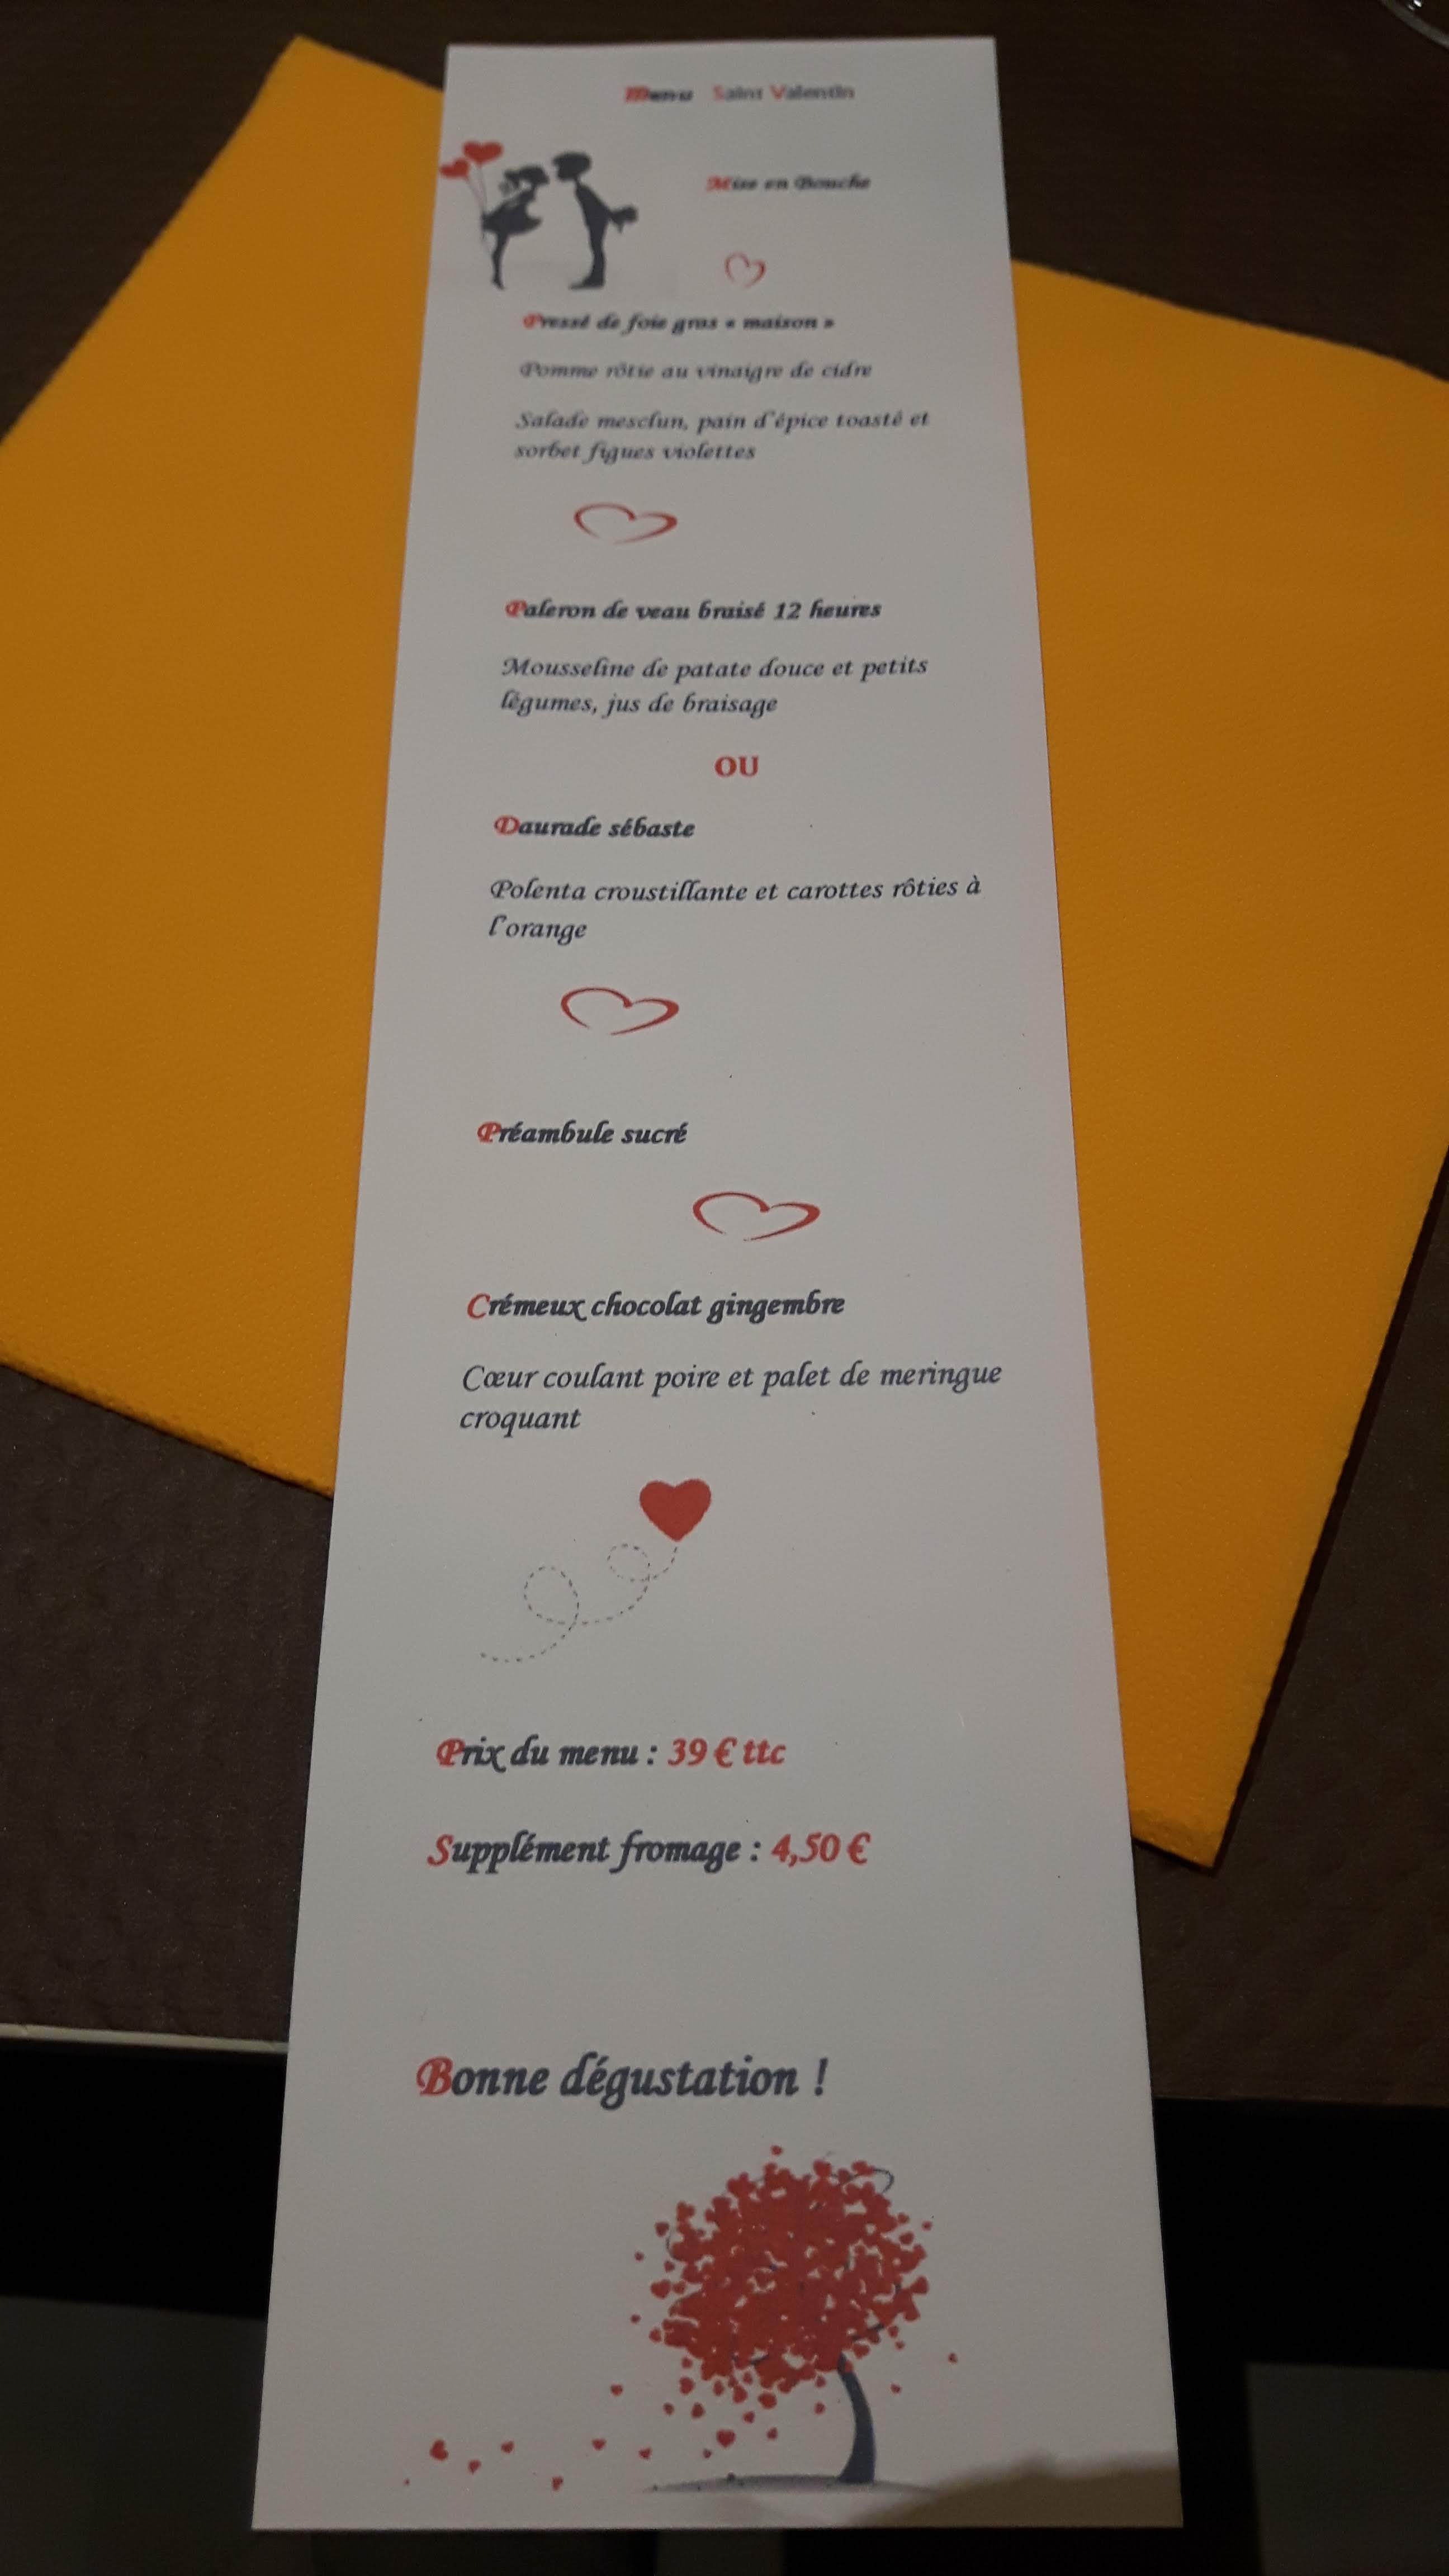 Menu Saint Valentin
Mise en Bouche
Pressé de foie gras « maison »
Pomme rôtie au vinaigre de cidre
Salade mesclun, pain d'épice toasté et
sorbet figues violettes
Paleron de veau braisé 12 heures
Mousseline de patate douce et petits
légumes, jus de braisage
OU
Daurade sébaste
Polenta croustillante et carottes rôties à
l'orange
Préambule sucré
Crémeux chocolat gingembre
Cœur coulant poire et palet de meringue
croquant
Prix du menu : 39 € ttc
Supplément fromage : 4,50 €
Bonne dégustation !